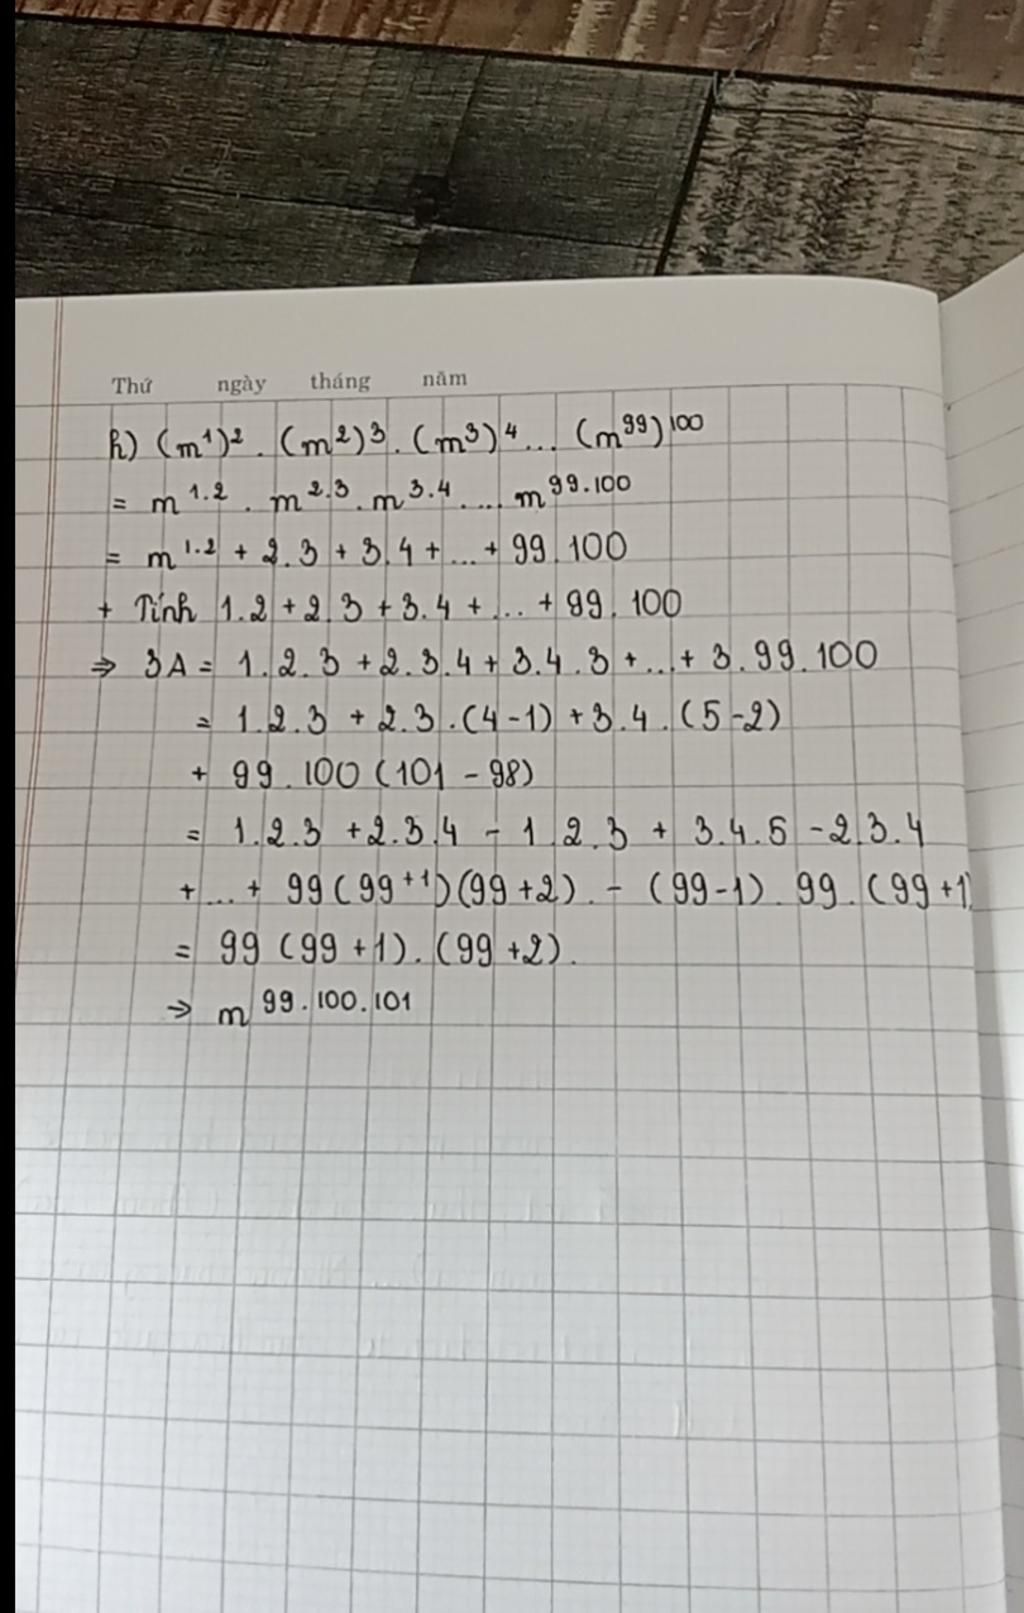 Thứ ngày tháng năm
h) (m¹)². (m²)³. (m³)⁴... (m⁹⁹)¹⁰⁰
= m¹·². m²·³. m³·⁴.... m⁹⁹·¹⁰⁰
= m¹·² + 2.3 + 3.4 + ... + 99.100
+ Tính 1.2 + 2.3 + 3.4 + ... + 99.100
⇒ 3A = 1.2.3 + 2.3.4 + 3.4.3 + ... + 3.99.100
= 1.2.3 + 2.3.(4-1) + 3.4.(5-2)
+ 99.100(101 - 98)
= 1.2.3 + 2.3.4 - 1.2.3 + 3.4.5 - 2.3.4
+ ... + 99(99+1)(99+2). - (99-1).99.(99+1)
= 99(99+1).(99+2).
⇒ m⁹⁹·¹⁰⁰·¹⁰¹